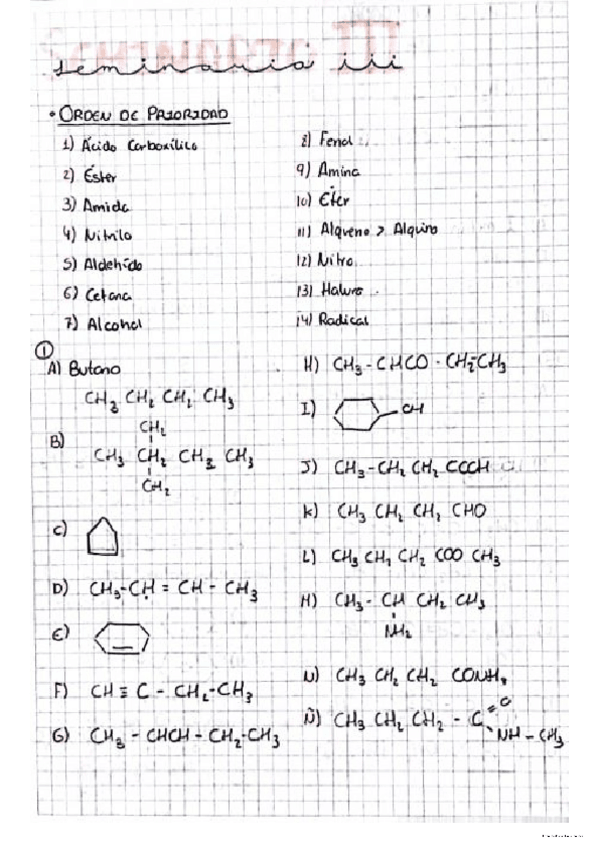 Seminario iii
• ORDEN DE PRIORIDAD
1) Ácido Carboxílico
2) Éster
3) Amida
4) Nitrilo
5) Aldehído
6) Cetona
7) Alcohol
8) Fenol
9) Amina
10) Éter
11) Alqueno > Alquino
12) Nitro
13) Haluro
14) Radical
①
A) Butano
CH3 CH2 CH2 CH3
B)
CH2
CH3 CH2 CH2 CH3
CH2
C)
D) CH3-CH = CH - CH3
E)
F) CH ≡ C - CH2-CH3
G) CH3 - CHCH - CH2-CH3
H) CH3 - CHCO - CH2-CH3
I) OH
J) CH3-CH2 CH2 COOH
K) CH3 CH2 CH2 CHO
L) CH3 CH2 CH2 COO CH3
M) CH3 - CH CH2 CH3
NH2
N) CH3 CH2 CH2 CONH2
Ñ) CH3 CH2 CH2 - C = O
NH - CH3